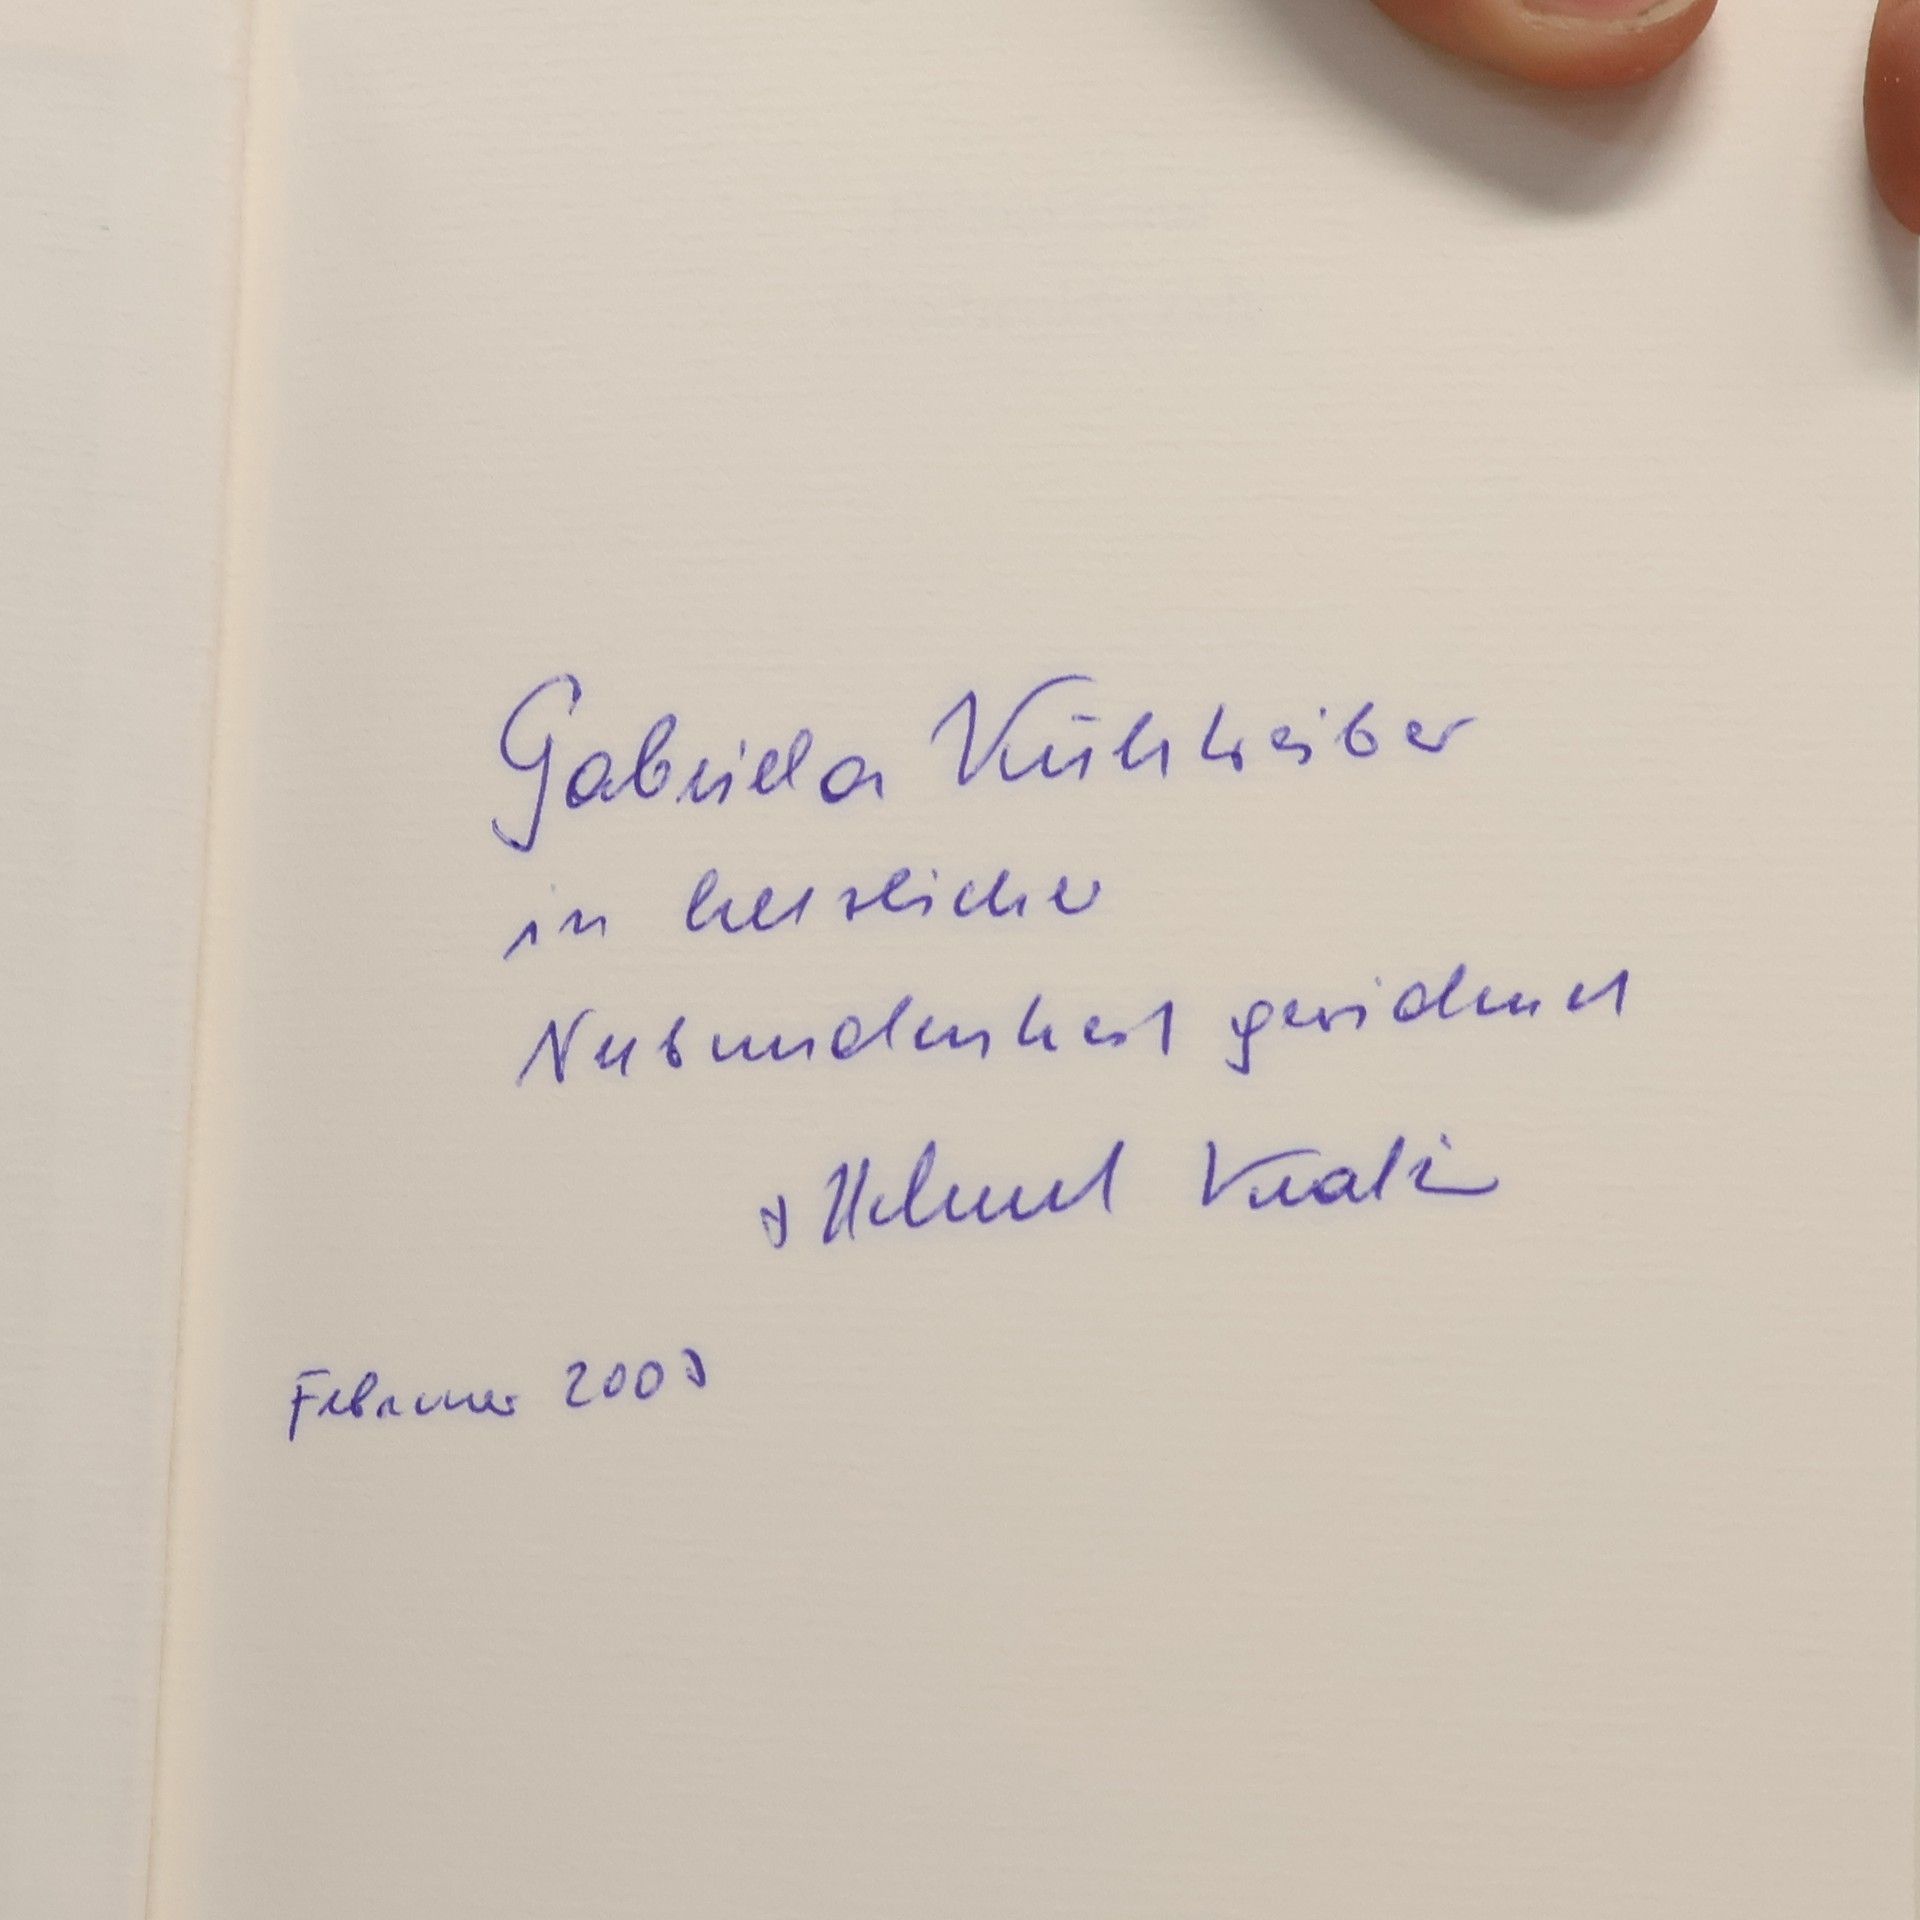 Gabriela Kühtreiber
in herzlicher
Verbundenheit gewidmet
Helmut
Februar